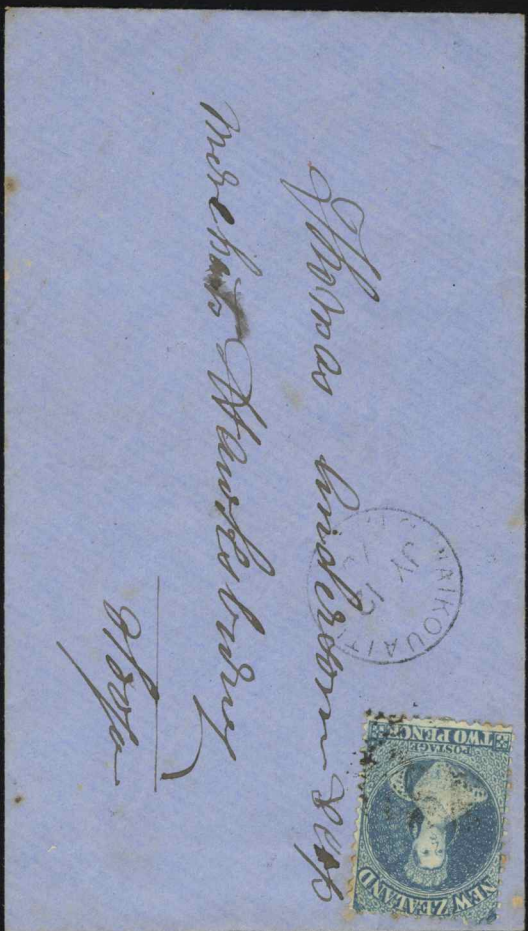 Thomas Anderson Esq
Merchant Hawksbury
Otago
WAIKOUAITI
JY 12
NEW ZEALAND
POSTAGE
TWO PENCE